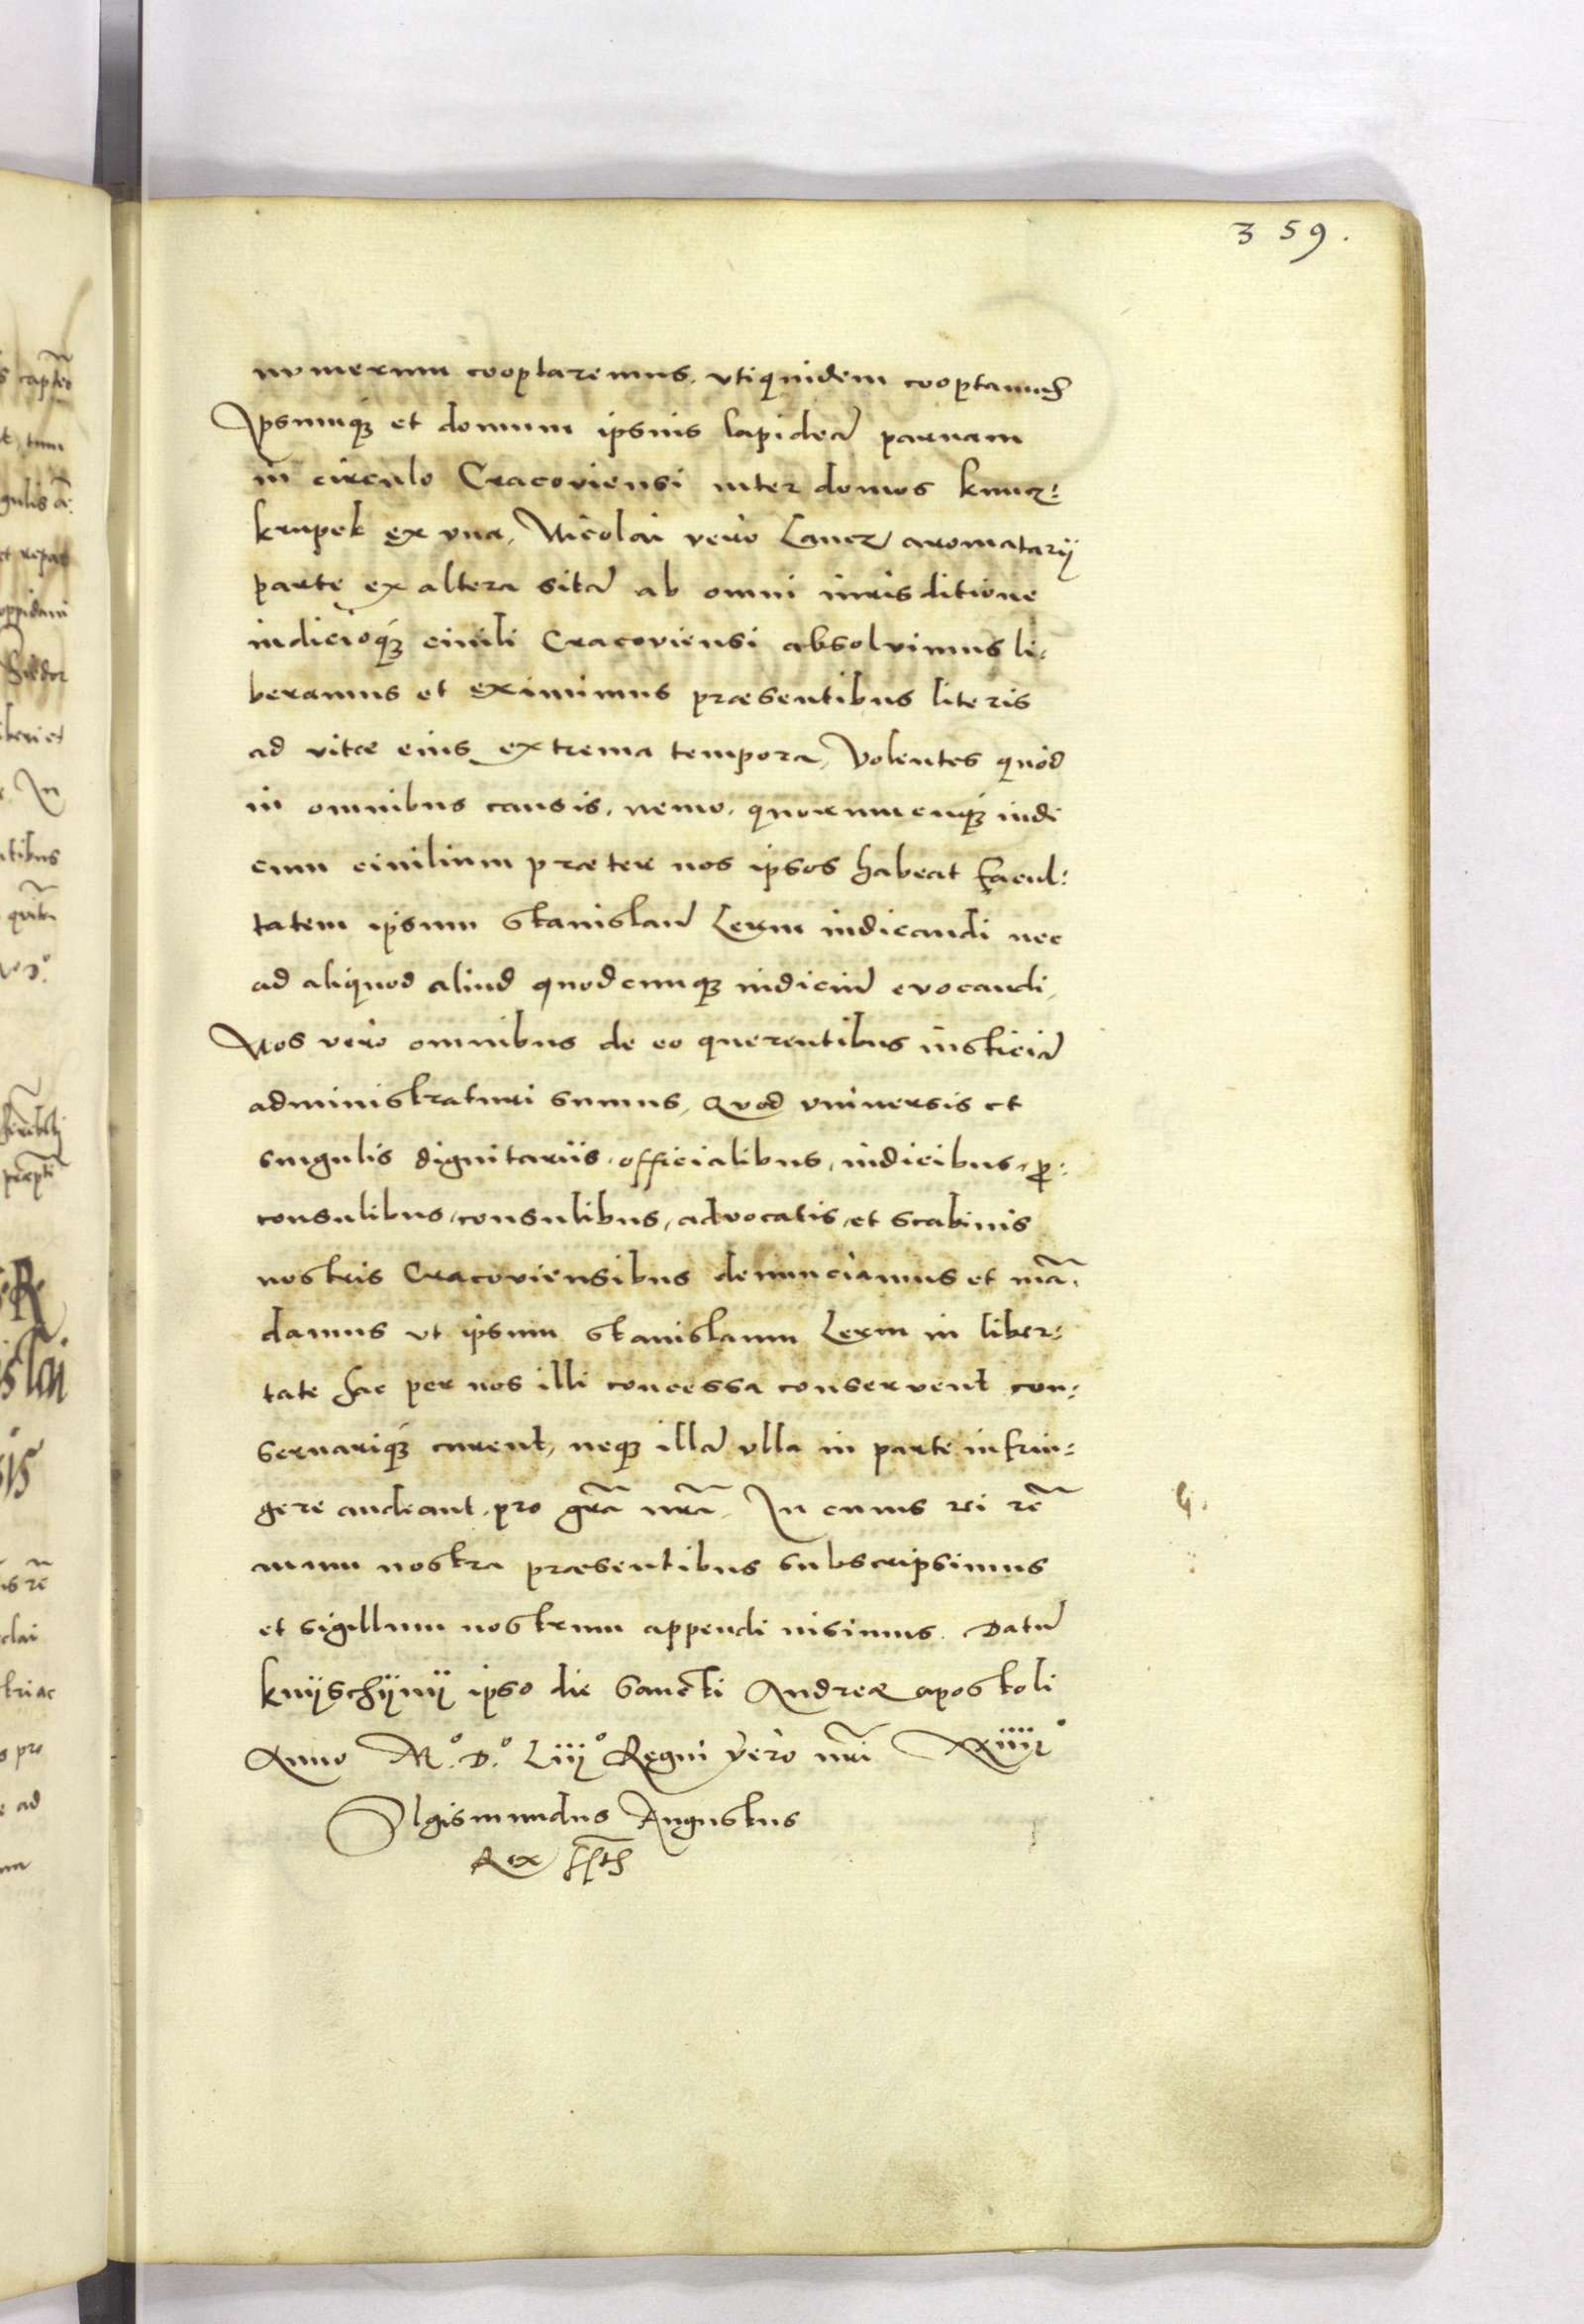 359.
numerum cooptaremus, vtiquidem cooptamus
Ipsumqз et domum ipsius lapideã paruam
in circulo Cracoviensi inter domos kmicz:
krupek ex vna, Nicolai vero Lancz aromatarij
parte ex altera sitã ab omni iurisditione
iudicioqз ciuili Cracoviensi absolvimus li:
beramus et eximimus præsentibus literis
ad vitæ eius extrema tempora, Volentes quòd
in omnibus causis, nemo, quorumcunqз iudi
cum ciuilium præter nos ipsos habeat facul:
tatem ipsum Stanislaũ Lerm iudicandi nec
ad aliquod aliud quodcumqз iudiciũ evocandi,
Nos vero omnibus de eo querentibus iusticiã
administraturi sumus, Quod vniuersis et
singulis dignitariis, officialibus, iudicibus, p̱:
consulibus, consulibus, advocatis, et scabinis
nostris Cracoviensibus denunciamus et mã:
damus vt ipsum Stanislaum Lerm in liber:
tate hac per nos illi concessa conservent con:
seruariqз curent, neqз illã vlla in parte infrin:
gere audeant, pro grã nrã, In cuius rei rẽ
manu nostra præsentibus subscripsimus
et sigillum nostrum appendi iusimus. Datũ
knÿschÿnÿ ipso die Sancti Andreæ apostoli
Anno M.º D.º Liijº Regni vero nrĩ XXiiijº
SIgismundus Augustus
Rex sst